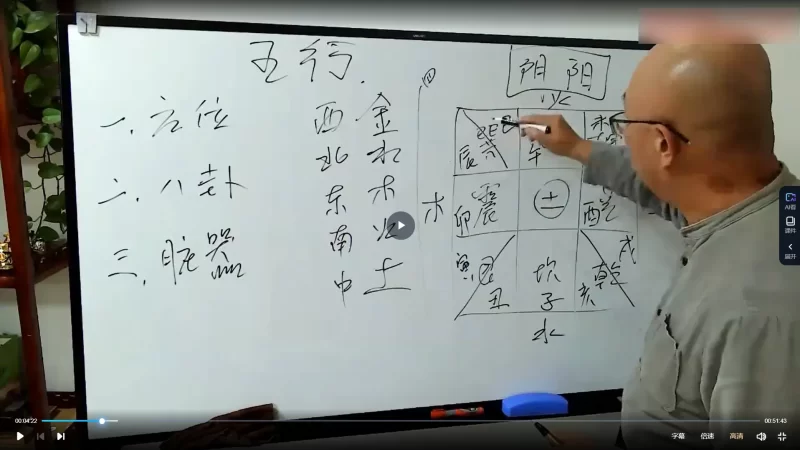 五行
一、方位
二、八卦
三、脏器
西 金
北 水
东 木
南 火
中 土
四
阳 阳
火
辰 巽 巳
午
木
卯 震
土
酉
寅 艮 丑
坎 子
乾 戌 亥
水
AI看
课件
展开
00:04:22
00:51:43
字幕 倍速 高清